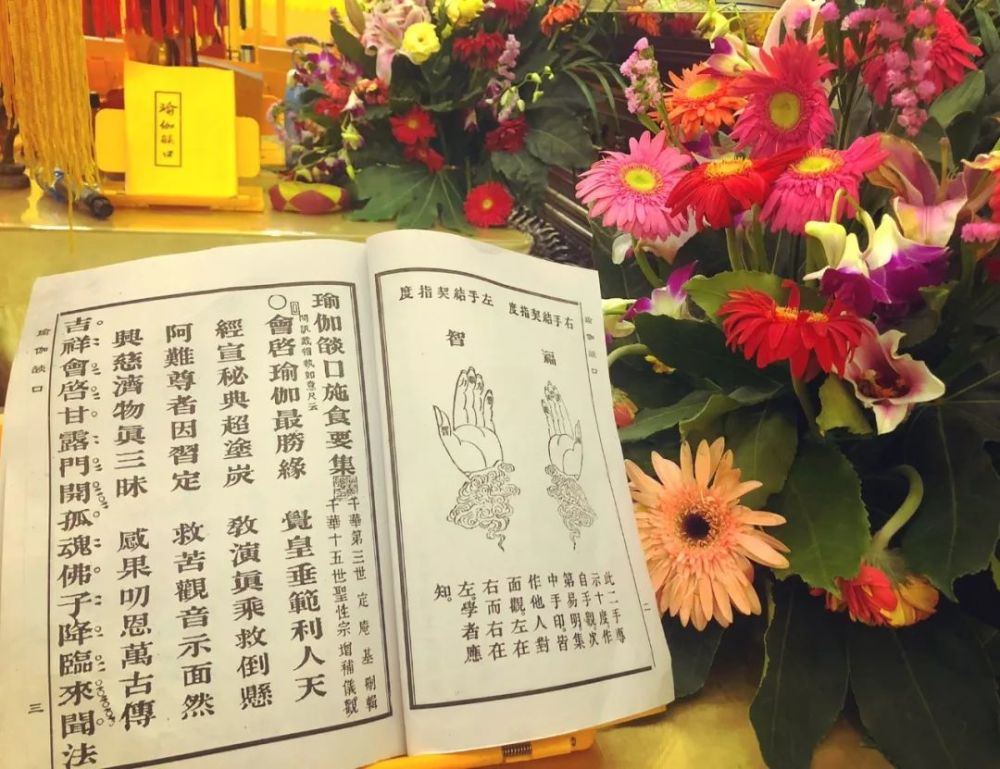 瑜伽燄口
瑜伽燄口
二
右手結契指度
左手結契指度
福
智
此二手專
示十度作
自手觀次
第易明集
中手印皆
作他人對
面觀。左在
右而右在
左。學者應
知。
瑜伽燄口施食要集
千華第三世定庵基刪輯
千華十五世聖性宗增補儀觀
問訊戴帽執如意尺云
○會啓瑜伽最勝緣 覺皇垂範利人天
經宣秘典超塗炭 敎演眞乘救倒懸
阿難尊者因習定 救苦觀音示面然
興慈濟物眞三昧 感果叨恩萬古傳
吉祥會啓甘露門開孤魂佛子降臨來聞法
瑜伽燄口
三